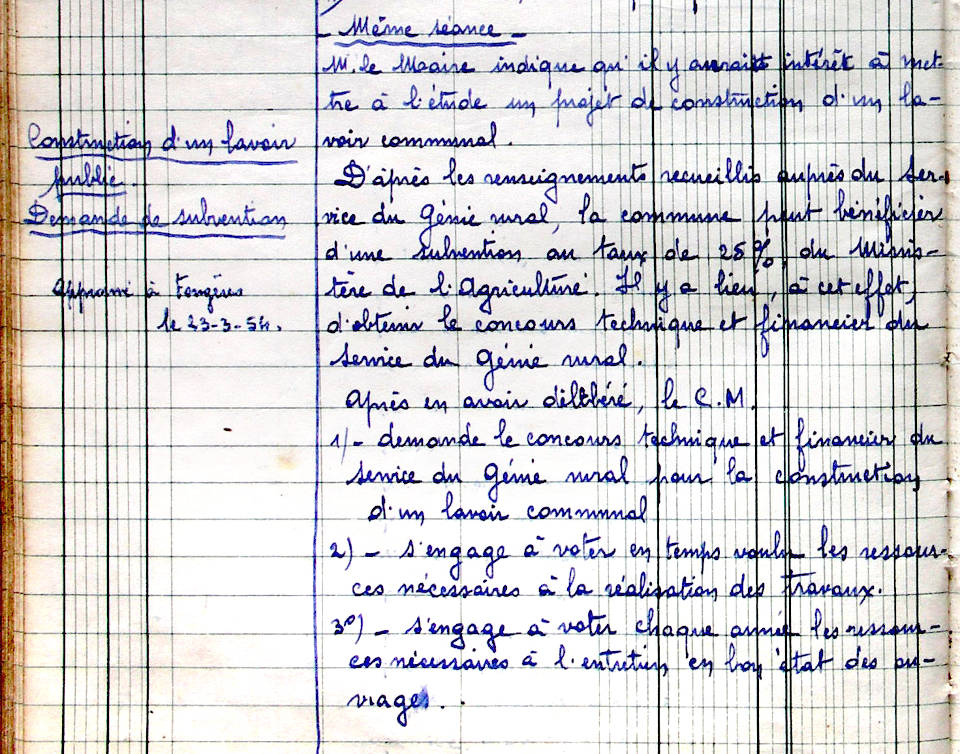 - Même séance -
M. le Maire indique qu'il y aurait intérêt à met-
tre à l'étude un projet de construction d'un la-
voir communal.
Construction d'un lavoir
public.
Demande de subvention
D'après les renseignements recueillis auprès du Ser-
vice du Génie rural, la commune peut bénéficier
d'une subvention au taux de 25 % du Minis-
tère de l'Agriculture. Il y a lieu, à cet effet,
d'obtenir le concours technique et financier du
Service du Génie rural.
Approuvé à Fougères
le 23-3-54.
Après en avoir délibéré, le C.M.
1/- demande le concours technique et financier du
Service du Génie rural pour la construction
d'un lavoir communal
2) - S'engage à voter en temps voulu les ressour-
ces nécessaires à la réalisation des travaux.
3°) - S'engage à voter chaque année les ressour-
ces nécessaires à l'entretien en bon état des ou-
vrages.